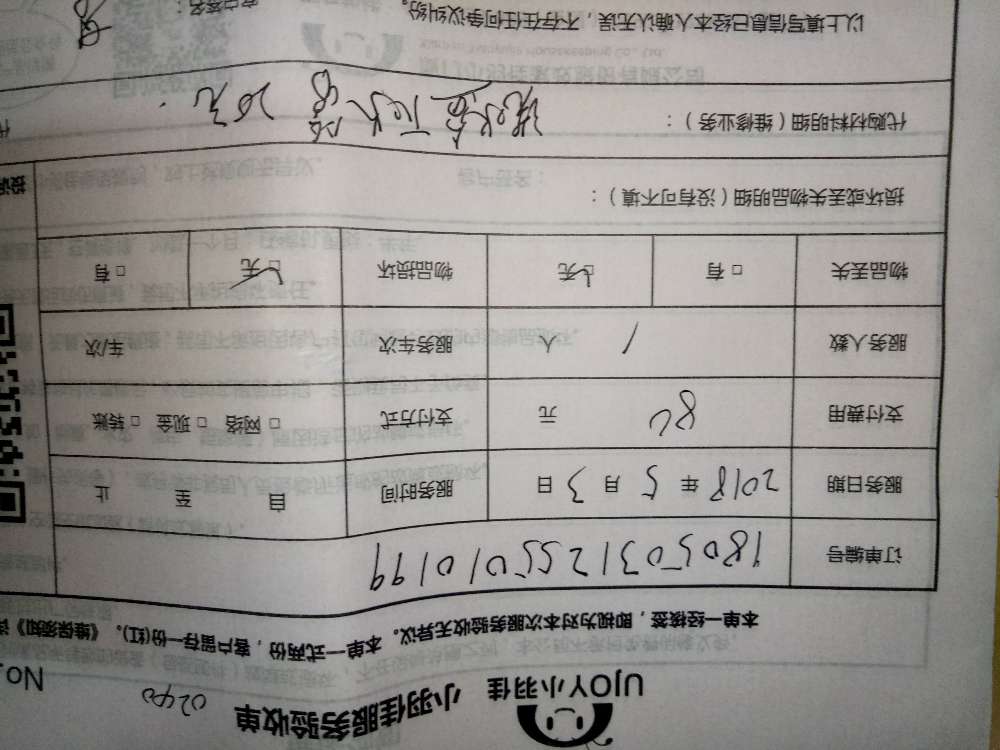 UJOY小羽佳 小羽佳服务验收单 0240 No.
本单一经核签,即视为对本次服务验收无异议。本单一式两份,客户留存一份(红)。《维保须知》详
订单编号 1805031255010199
服务日期 2018年5月3日 服务时间 自 至 止
支付费用 80 元 支付方式 □网络 □现金 □转账
服务人数 1 人 服务车次 车/次
物品丢失 □有 □无 物品损坏 □有 □无
损坏或丢失物品明细(没有可不填): 投诉
代购材料明细(维修业务): 洗衣盆下水管 20元. 代
以上填写信息已经本人确认无误,不存在任何争议纠纷。 客户签名: